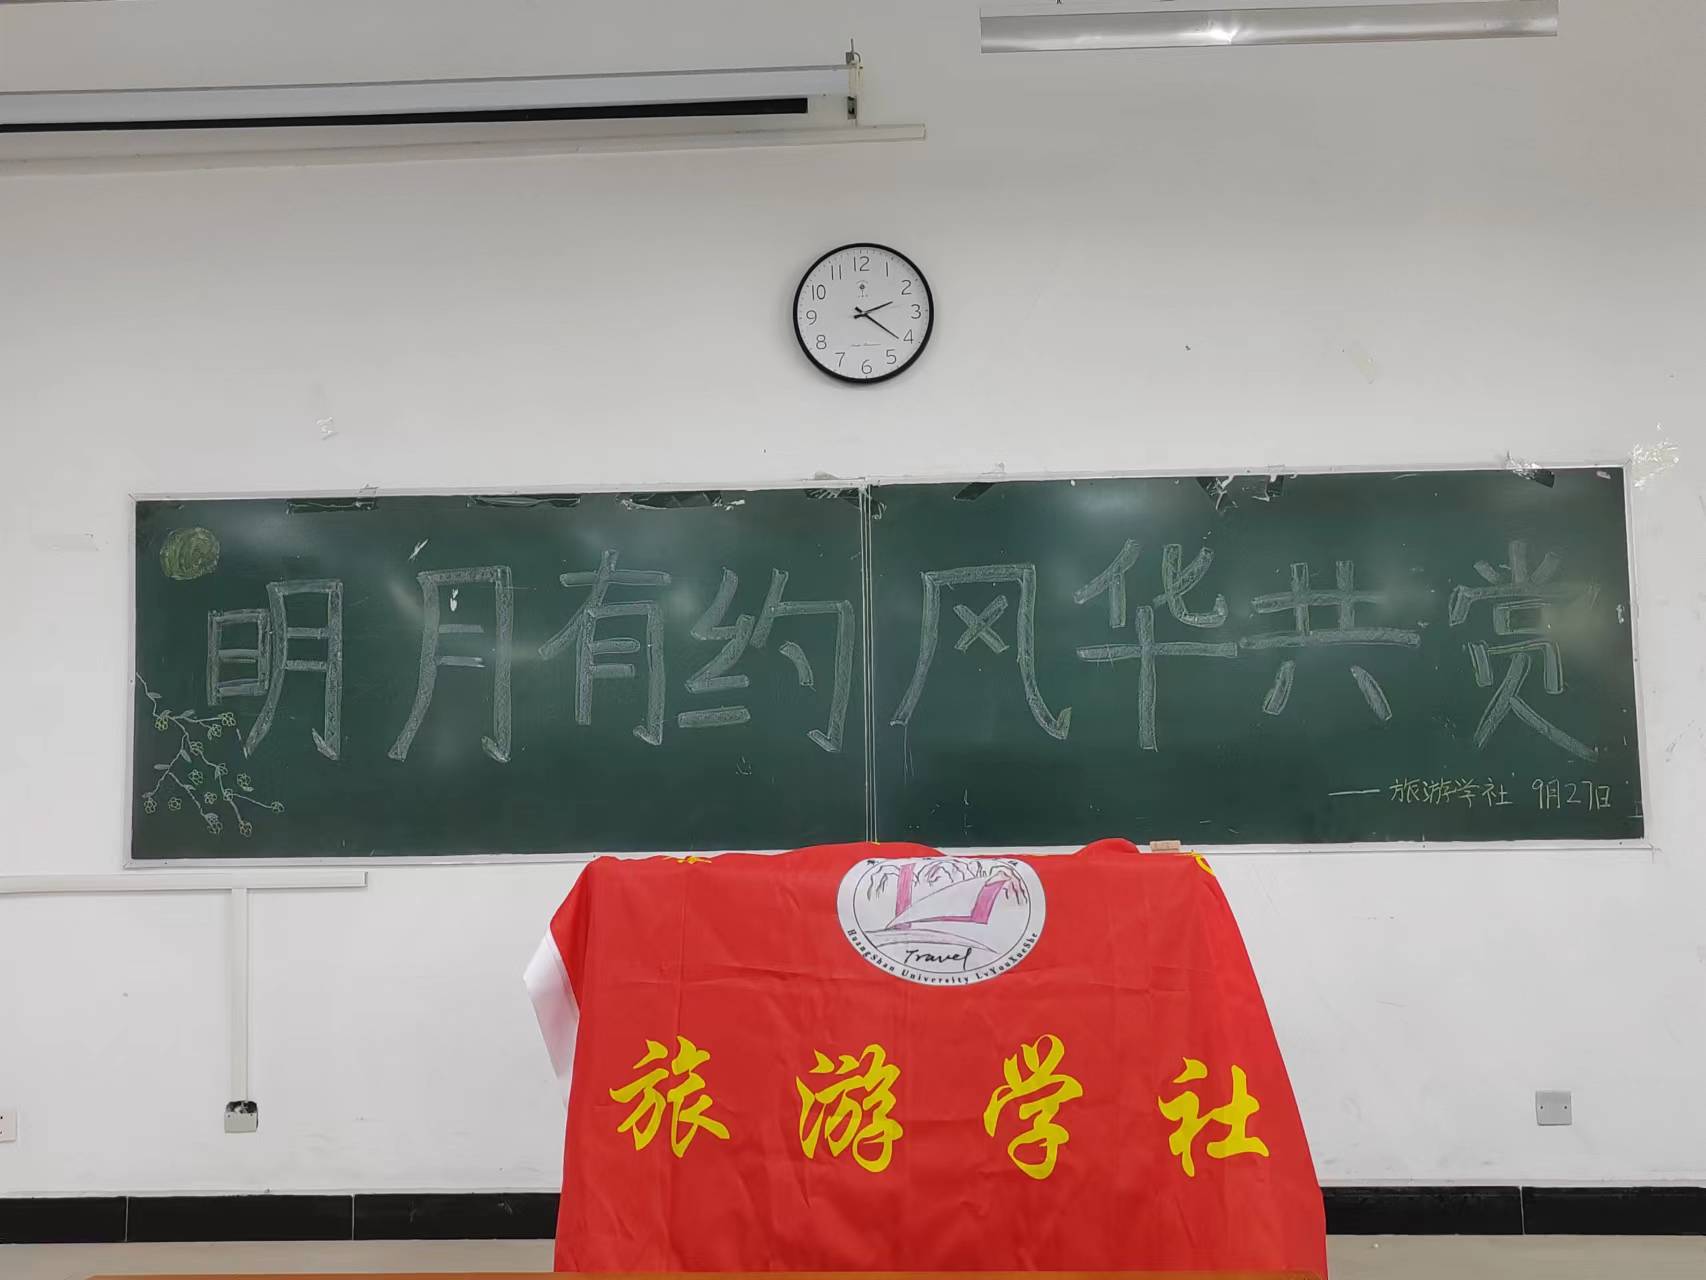 12
1
2
3
4
5
6
7
8
9
10
11
明月有约 风华共赏
——旅游学社 9月27日
Travel
HuangShan University LvYouXueShe
旅游学社